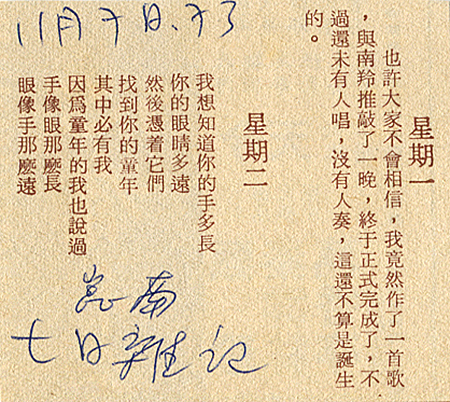 11月7日、73
星期一
也許大家不會相信，我竟然作了一首歌
，與南羚推敲了一晚，終于正式完成了，不
過還未有人唱，沒有人奏，這還不算是誕生
的。
星期二
我想知道你的手多長
你的眼睛多遠
然後憑着它們
找到你的童年
其中必有我
因爲童年的我也說過
手像眼那麽長
眼像手那麽遠
崑南
七日雜記